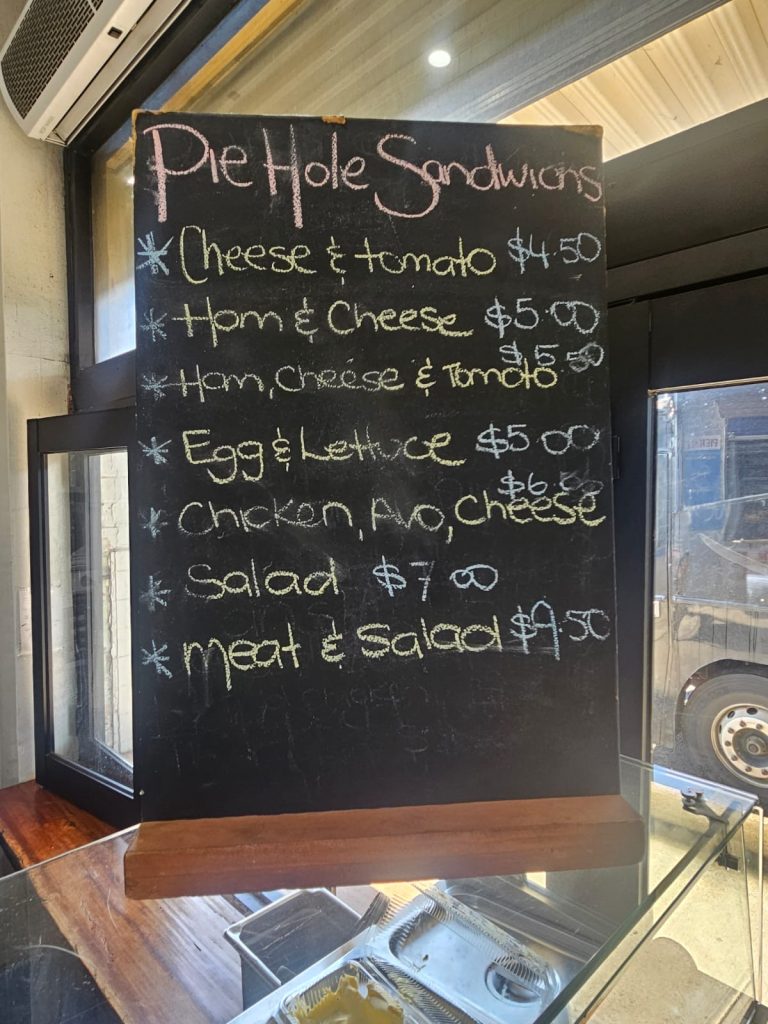 Pie Hole Sandwichs
* Cheese & tomato $4.50
* Ham & Cheese $5.00
* Ham, Cheese & Tomato $5.50
* Egg & Lettuce $5.00
* Chicken, Avo, Cheese
* Salad $7.00
* meat & Salad $9.50